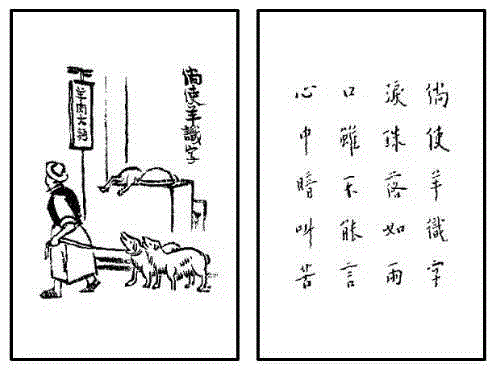 倘使羊識字
淚珠落如雨
口雖不能言
心中暗叫苦
倘使羊識字
羊肉大